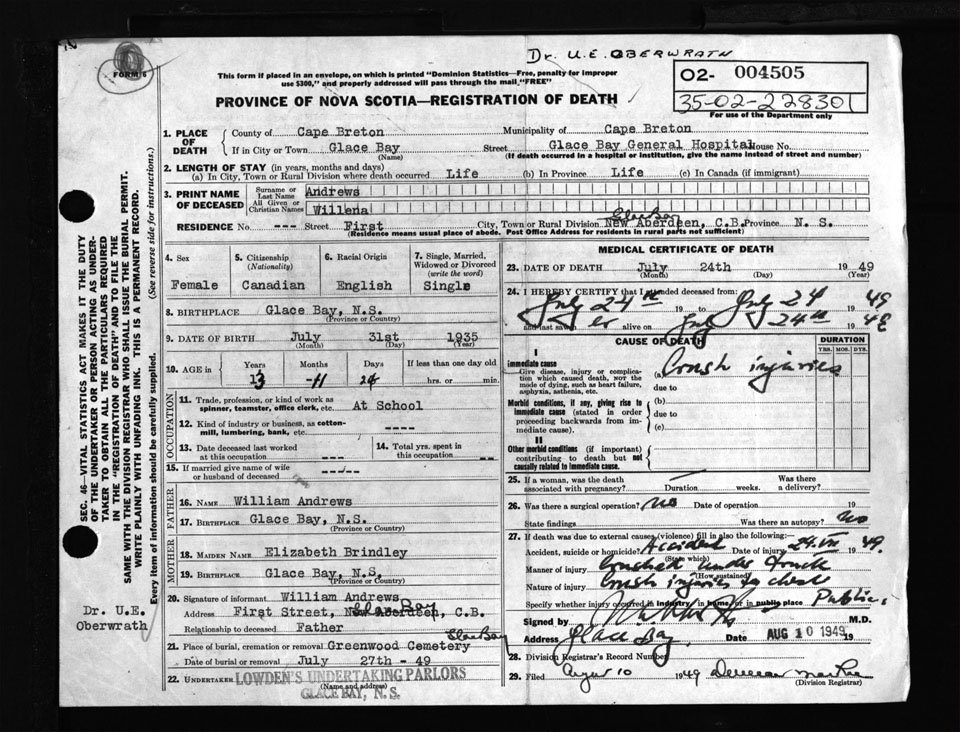 Dr. U.E. OBERWRATH
FORM 6
This form if placed in an envelope, on which is printed "Dominion Statistics—Free, penalty for improper
use $300," and properly addressed will pass through the mail "FREE"
O2- 004505
35-02-228301
For use of the Department only
PROVINCE OF NOVA SCOTIA—REGISTRATION OF DEATH
1. PLACE OF DEATH County of Cape Breton Municipality of Cape Breton
If in City or Town Glace Bay (Name) Street Glace Bay General Hospital House No.
(If death occurred in a hospital or institution, give the name instead of street and number)
2. LENGTH OF STAY (in years, months and days)
(a) In City, Town or Rural Division where death occurred Life (b) In Province Life (c) In Canada (if immigrant)
3. PRINT NAME OF DECEASED Surname or Last Name Andrews
All Given or Christian Names Willena
RESIDENCE No. --- Street First City, Town or Rural Division Glace Bay New Aberdeen, C.B. Province N. S.
(Residence means usual place of abode. Post Office Address for residents in rural parts not sufficient)
4. Sex Female
5. Citizenship (Nationality) Canadian
6. Racial Origin English
7. Single, Married, Widowed or Divorced (write the word) Single
8. BIRTHPLACE Glace Bay, N.S.
(Province or Country)
9. DATE OF BIRTH July 31st 1935
(Month) (Day) (Year)
10. AGE in Years Months Days If less than one day old
13 -11 24 hrs. or min.
OCCUPATION
11. Trade, profession, or kind of work as spinner, teamster, office clerk, etc. At School
12. Kind of industry or business, as cotton-mill, lumbering, bank, etc. ----
13. Date deceased last worked at this occupation ---
14. Total yrs. spent in this occupation --
15. If married give name of wife or husband of deceased -----
FATHER
16. NAME William Andrews
17. BIRTHPLACE Glace Bay, N.S.
(Province or Country)
MOTHER
18. MAIDEN NAME Elizabeth Brindley
19. BIRTHPLACE Glace Bay, N.S.
(Province or Country)
20. Signature of informant William Andrews
Address First Street, New Aberdeen, C.B. Glace Bay
Relationship to deceased Father
21. Place of burial, cremation or removal Greenwood Cemetery Glace Bay
Date of burial or removal July 27th - 49
22. UNDERTAKER LOWDEN'S UNDERTAKING PARLORS
(Name and address)
GLACE BAY, N. S.
MEDICAL CERTIFICATE OF DEATH
23. DATE OF DEATH July 24th 1949
(Month) (Day) (Year)
24. I HEREBY CERTIFY that I attended deceased from:
July 24th 19 to July 24 1949
and last saw er alive on July 24th 19
CAUSE OF DEATH
DURATION
YRS. MOS. DYS.
I
Immediate cause
Give disease, injury or complication which caused death, not the mode of dying, such as heart failure, asphyxia, asthenia, etc.
(a) Crush injuries
due to
Morbid conditions, if any, giving rise to immediate cause (stated in order proceeding backwards from immediate cause).
(b)
due to
(c)
II
Other morbid conditions (if important) contributing to death but not causally related to immediate cause.
25. If a woman, was the death associated with pregnancy? Duration weeks. Was there a delivery?
26. Was there a surgical operation? No Date of operation 19
State findings Was there an autopsy? No
27. If death was due to external causes (violence) fill in also the following:
Accident, suicide or homicide? Accident Date of injury 24.VII 1949.
(State which)
Manner of injury Crushed under truck
(How sustained)
Nature of injury Crush injuries to chest
Specify whether injury occurred in industry, in home, or in public place Public.
Signed by M.D.
Address Glace Bay Date AUG 10 1949 19
28. Division Registrar's Record Number
29. Filed August 10 1949
(Division Registrar)
SEC. 46—VITAL STATISTICS ACT MAKES IT THE DUTY
OF THE UNDERTAKER OR PERSON ACTING AS UNDER-
TAKER TO OBTAIN ALL THE PARTICULARS REQUIRED
IN THE "REGISTRATION OF DEATH" AND TO FILE THE
SAME WITH THE DIVISION REGISTRAR WHO SHALL ISSUE THE BURIAL PERMIT.
WRITE PLAINLY WITH UNFADING INK. THIS IS A PERMANENT RECORD.
Every item of information should be carefully supplied. (See reverse side for instructions.)
Dr. U.E.
Oberwrath